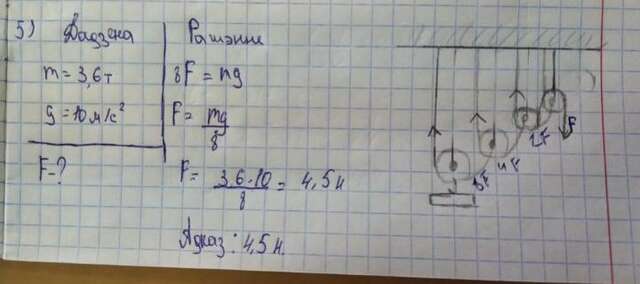 5) Дадзена
m = 3,6 т
g = 10 м/с²
F = ?
Рашэнне
8F = mg
F = mg/8
F = 3,6·10/8 = 4,5 н
Адказ: 4,5 н.
8F 4F 2F F